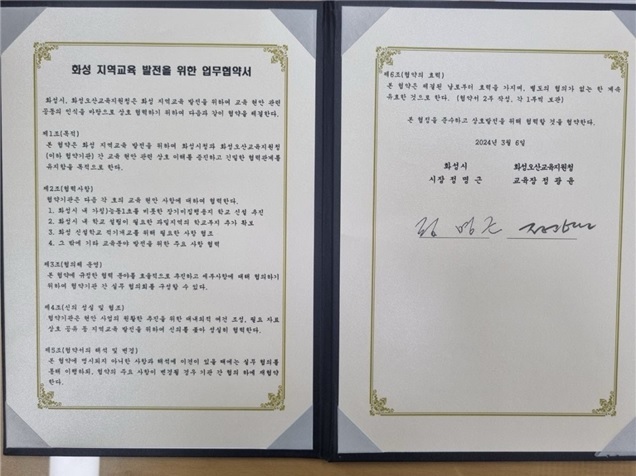 화성 지역교육 발전을 위한 업무협약서
화성시, 화성오산교육지원청은 화성 지역교육 발전을 위하여 교육 현안 관련
공통의 인식을 바탕으로 상호 협력하기 위하여 다음과 같이 협약을 체결한다.
제1조(목적)
본 협약은 화성 지역교육 발전을 위하여 화성시청과 화성오산교육지원청
(이하 협약기관) 간 교육 현안 관련 상호 이해를 증진하고 긴밀한 협력관계를
유지함을 목적으로 한다.
제2조(협력사항)
협약기관은 다음 각 호의 교육 현안 사항에 대하여 협력한다.
1. 화성시 내 가칭)능동1초를 비롯한 장기미집행용지 학교 신설 추진
2. 화성시 내 학교 설립이 필요한 과밀지역의 학교부지 추가 확보
3. 화성 신설학교 적기개교를 위해 필요한 사항 협조
4. 그 밖에 기타 교육분야 발전을 위한 주요 사항 협력
제3조(협의체 운영)
본 협약에 규정한 협력 분야를 효율적으로 추진하고 세부사항에 대해 협의하기
위하여 협약기관 간 실무 협의회를 구성할 수 있다.
제4조(신의 성실 및 협조)
협약기관은 현안 사업의 원활한 추진을 위한 대내외적 여건 조성, 필요 자료
상호 공유 등 지역교육 발전을 위하여 신의를 좇아 성실히 협력한다.
제5조(협약서의 해석 및 변경)
본 협약에 명시되지 아니한 사항과 해석에 이견이 있을 때에는 실무 협의를
통해 이행하되, 협약의 주요 사항이 변경될 경우 기관 간 협의 하에 재협약
한다.
제6조(협약의 효력)
본 협약은 체결된 날로부터 효력을 가지며, 별도의 협의가 없는 한 계속
유효한 것으로 한다. (협약서 2부 작성, 각 1부씩 보관)
본 협정을 준수하고 상호발전을 위해 협력할 것을 협약한다.
2024년 3월 6일
화성시 화성오산교육지원청
시장 정명근 교육장 정광윤
정명근